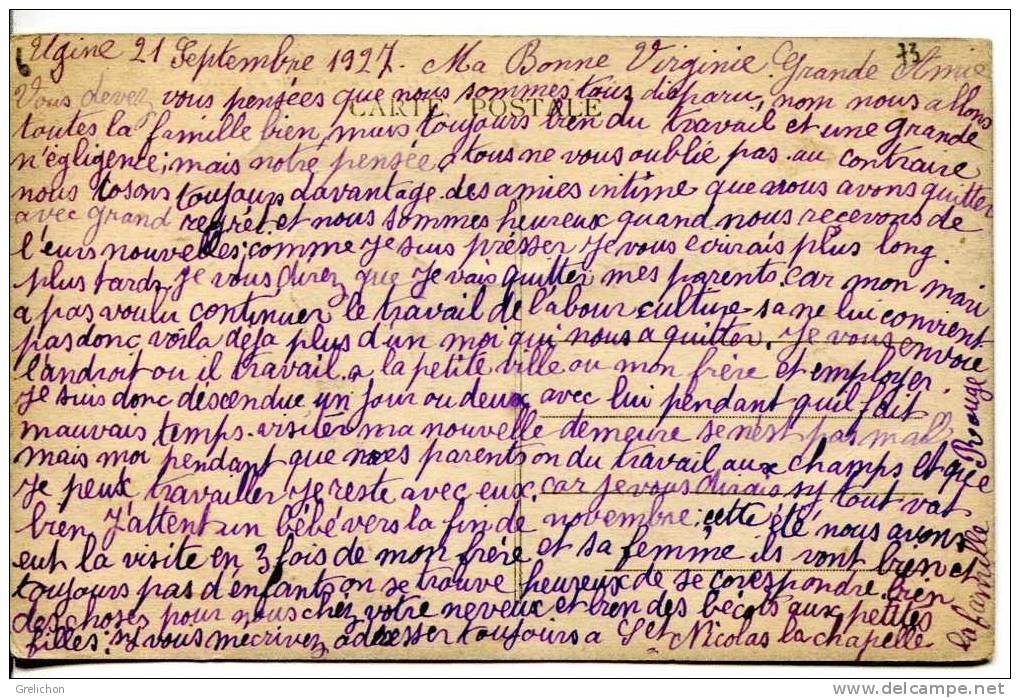 Ugine 21 Septembre 1927. Ma Bonne Virginie Grande Amie
73
Vous devez vous pensées que nous sommes tous disparu, nom nous allons
CARTE POSTALE
toutes la famille bien, mais toujours bien du travail et une grande
n'égligence; mais notre pensée a tous ne vous oublié pas au contraire
nous tosons toujours davantage des amies intime que nous avons quitter
avec grand regrét. et nous sommes heureux quand nous recevons de
l'eurs nouvelles; comme je suis presser je vous ecirais plus long
plus tards je vous direz que je vais quitter mes parents car mon mari
a pas voulu continuer le travail de labour culture sa ne lui convient
pas donc voila déja plus d'un moi qui nous a quitter. Je vous envoie
l'androit ou il travail a la petite ville ou mon frére et employer.
Je suis donc déscendue un jour ou deux avec lui pendant qu'il fait
mauvais temps visiter ma nouvelle demeure se n'est pas mal
mais moi pendant que mes parents on du travail aux champs et que
je peux travailler je reste avec eux. car je vous dirais sy tout vat
bien J'attent un bébé vers la fin de novembre; cette été nous avons
eut la visite en 3 fois de mon frére et sa femme ils vont bien et
toujours pas d'enfant on se trouve heureux de se corespondre. bien
des choses pour vous chez votre neveux et bien des bécots aux petites
filles; sy vous mecrivez adresser toujours a St Nicolas la chapelle
la famille Rouge
Grelichon
delcampe.net